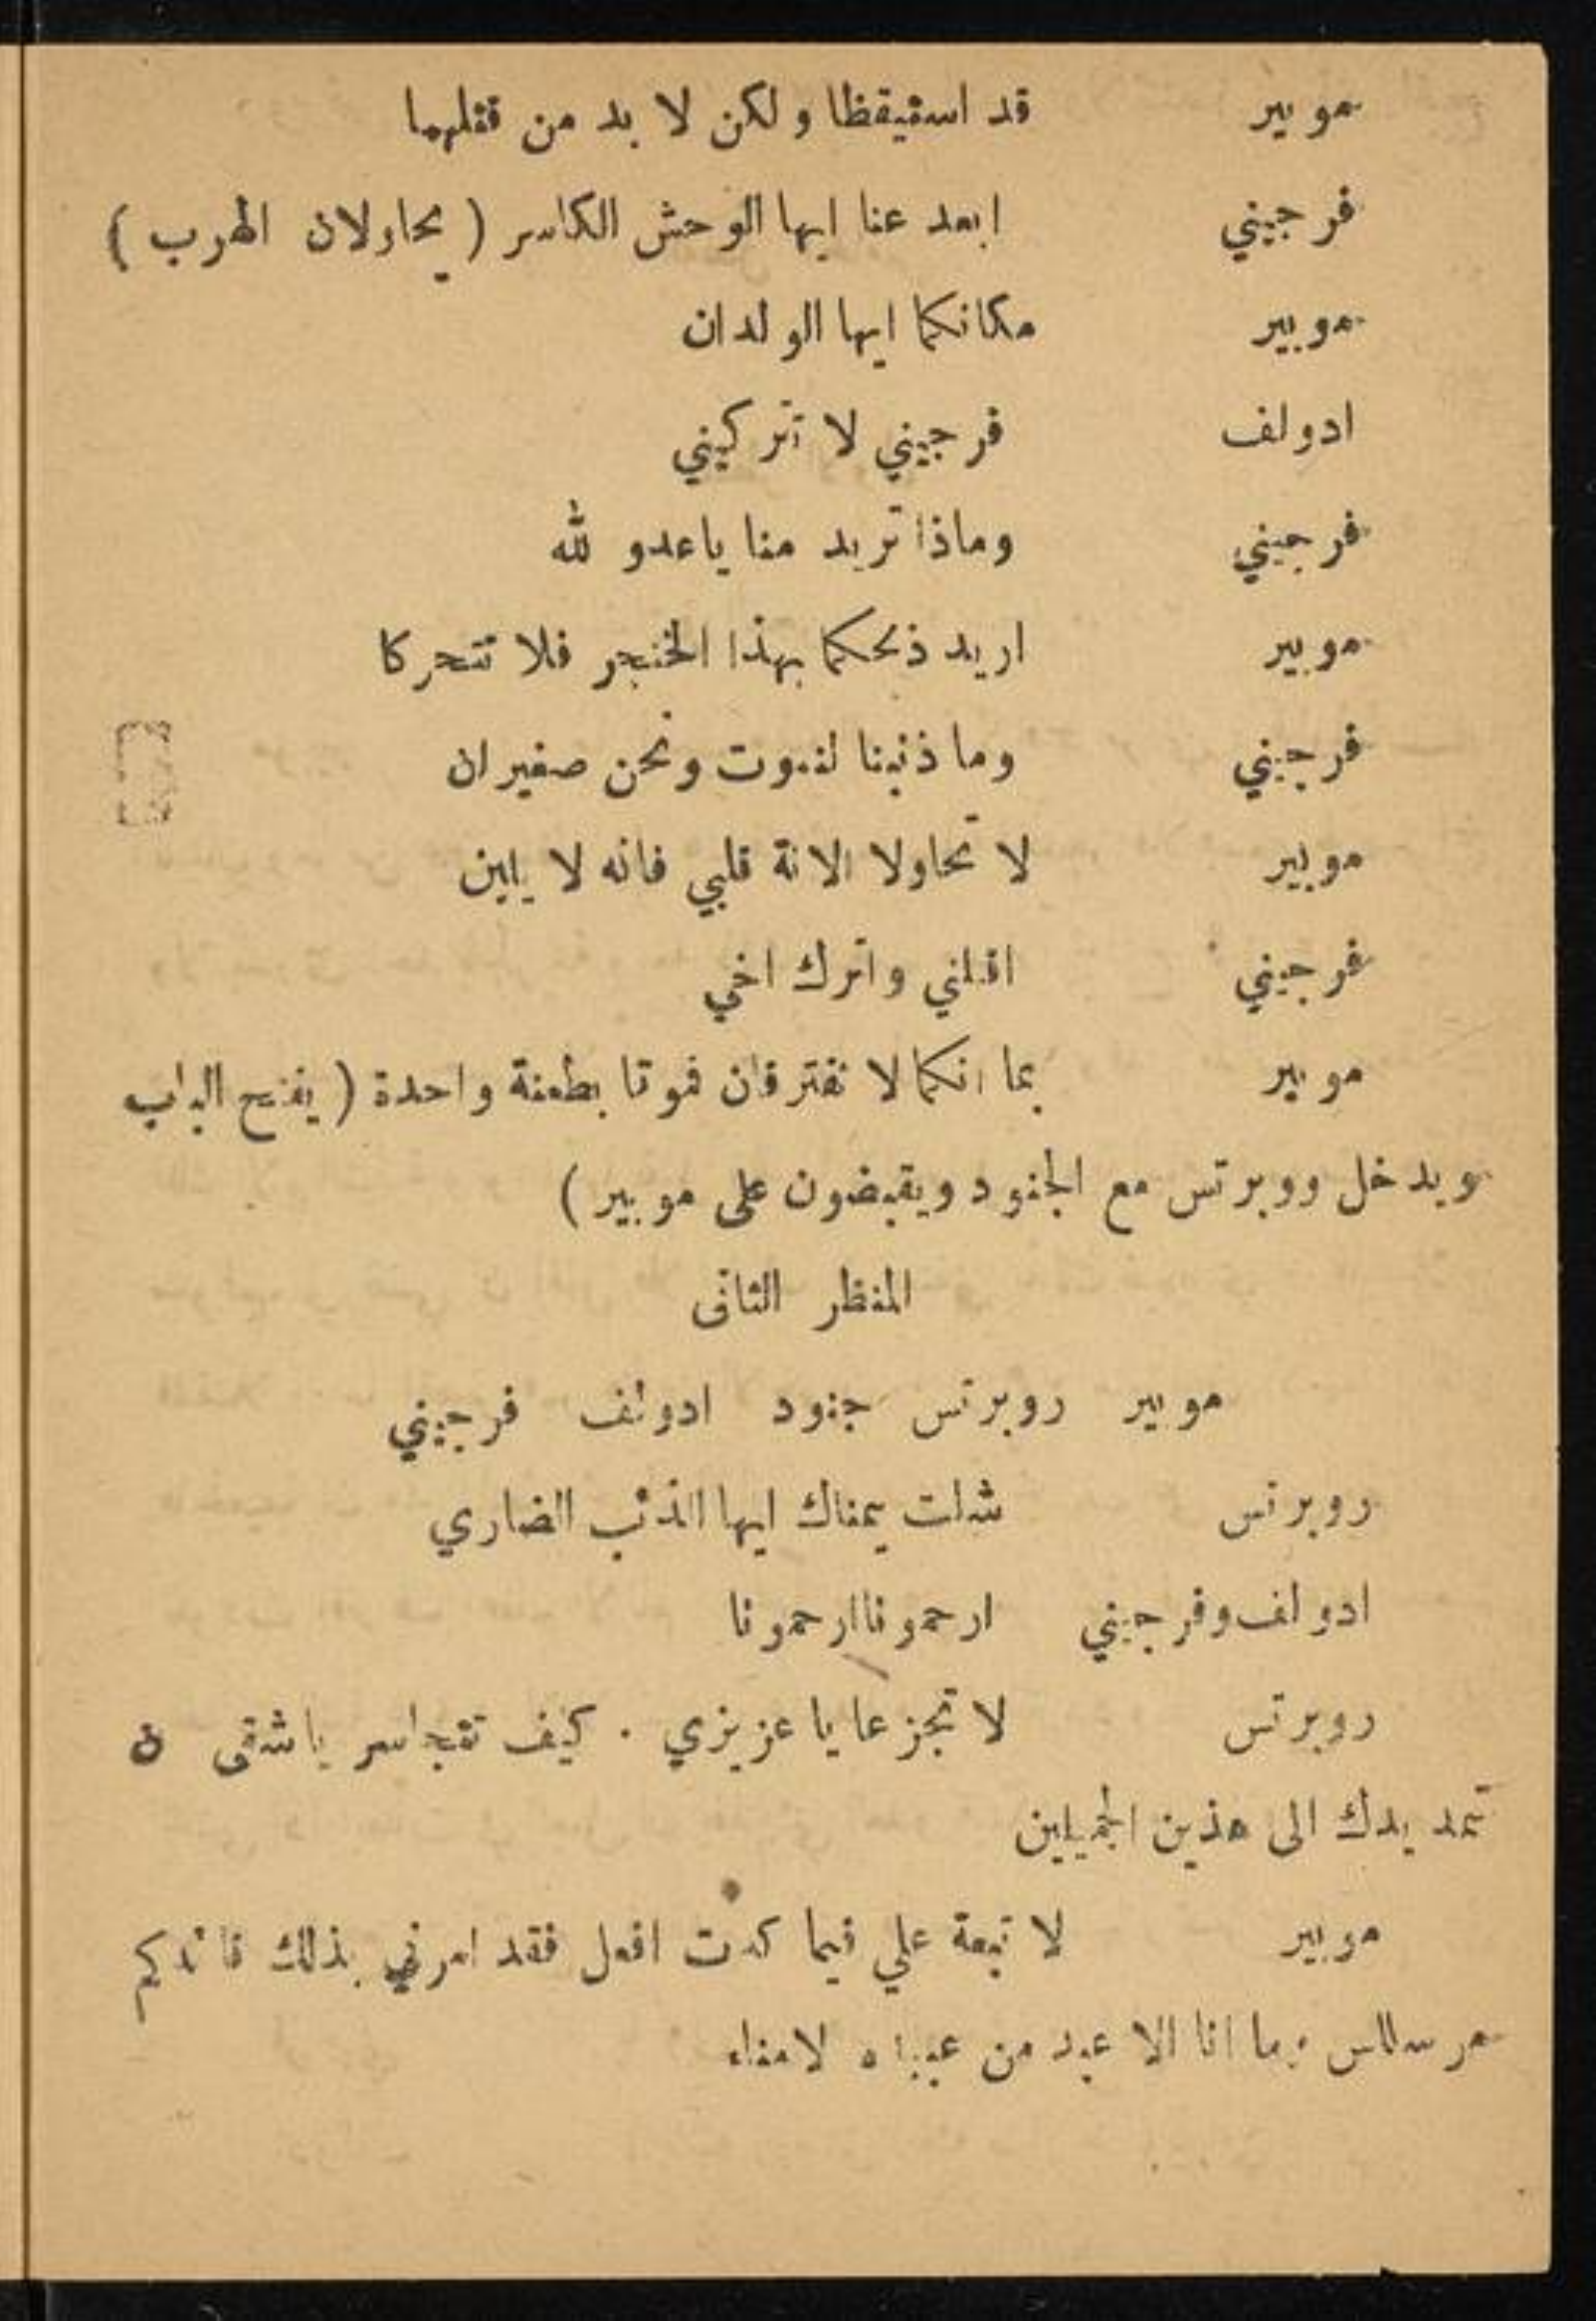 موبير قد استيقظا ولكن لا بد من قتلهما
فرجيني ابعد عنا ايها الوحش الكاسر ( يحاولان الهرب )
موبير مكانكما ايها الولدان
ادولف فرجيني لا تتركيني
فرجيني وماذا تريد منا ياعدو لله
موبير اريد ذبحكما بهذا الخنجر فلا تتحركا
فرجيني وما ذنبنا لنموت ونحن صغيران
موبير لا تحاولا الانة قلبي فانه لا يلين
فرجيني اقتلني واترك اخي
موبير بما انكما لا تفترقان فموتا بطعنة واحدة ( يفتح الباب
ويدخل ووبرتس مع الجنود ويقبضون على موبير )
المنظر الثانى
موبير روبرتس جنود ادولف فرجيني
روبرتس شلت يمناك ايها الذئب الضاري
ادولف وفرجيني ارحمونا ارحمونا
روبرتس لا تجزعا يا عزيزي . كيف تتجاسر ياشقى ن
تمد يدك الى هذين الجميلين
موبير لا تبعة علي فيما كنت افعل فقد امرني بذلك قائدكم
مرسللس وما انا الا عبد من عبيده لامناء